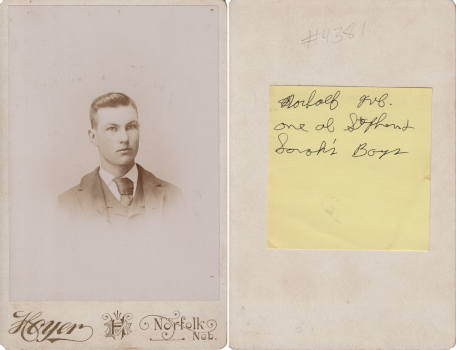 Hoyer H Norfolk
Neb.
#4381
Norfolk
one of Stephen &
Sarah's Boys